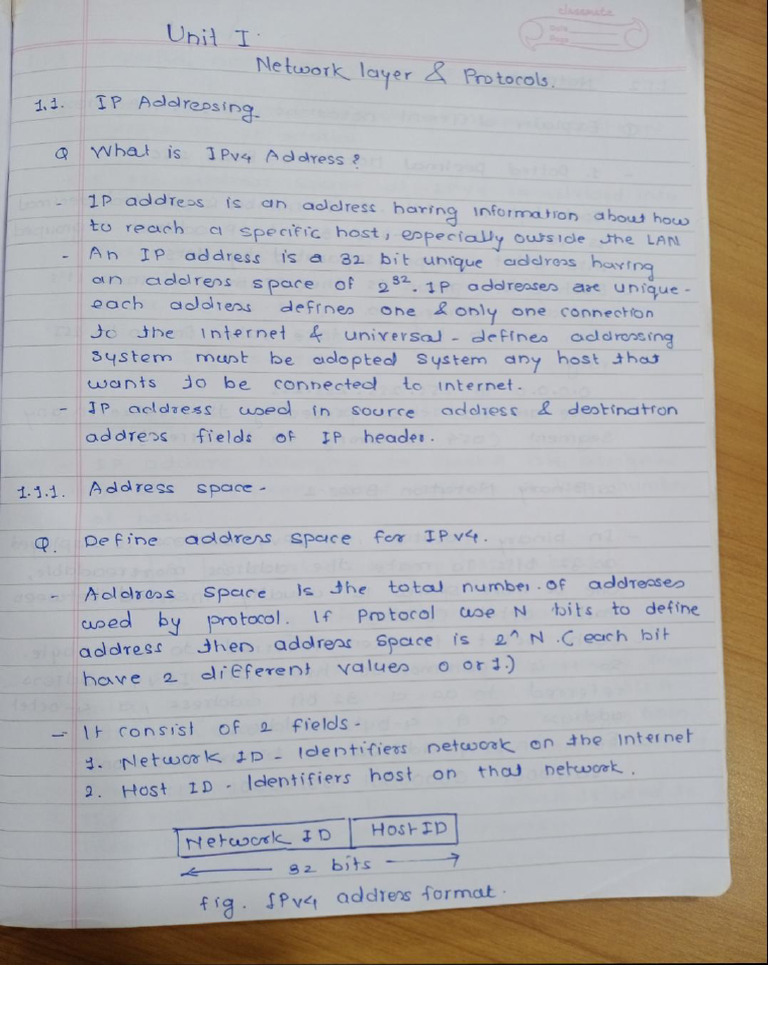 classmate
Date
Page
Unit I.
Network layer & Protocols.
1.1. IP Addressing.
Q What is IPv4 Address?
- IP address is an address having information about how
to reach a specific host, especially outside the LAN
- An IP address is a 32 bit unique address having
an address space of 2^32. IP addresses are unique -
each address defines one & only one connection
to the internet & universal - defines addressing
system must be adopted system any host that
wants to be connected to internet.
- IP address used in source address & destination
address fields of IP header.
1.1.1. Address space -
Q. Define address space for IPv4.
- Address space Is the total number. of addresses
used by protocol. If protocol use N bits to define
address then address space is 2^N. (each bit
have 2 different values 0 or 1.)
- It consist of 2 fields -
1. Network ID - Identifiers network on the internet
2. Host ID - Identifiers host on that network.
Network ID Host ID
32 bits
fig. IPv4 address format.